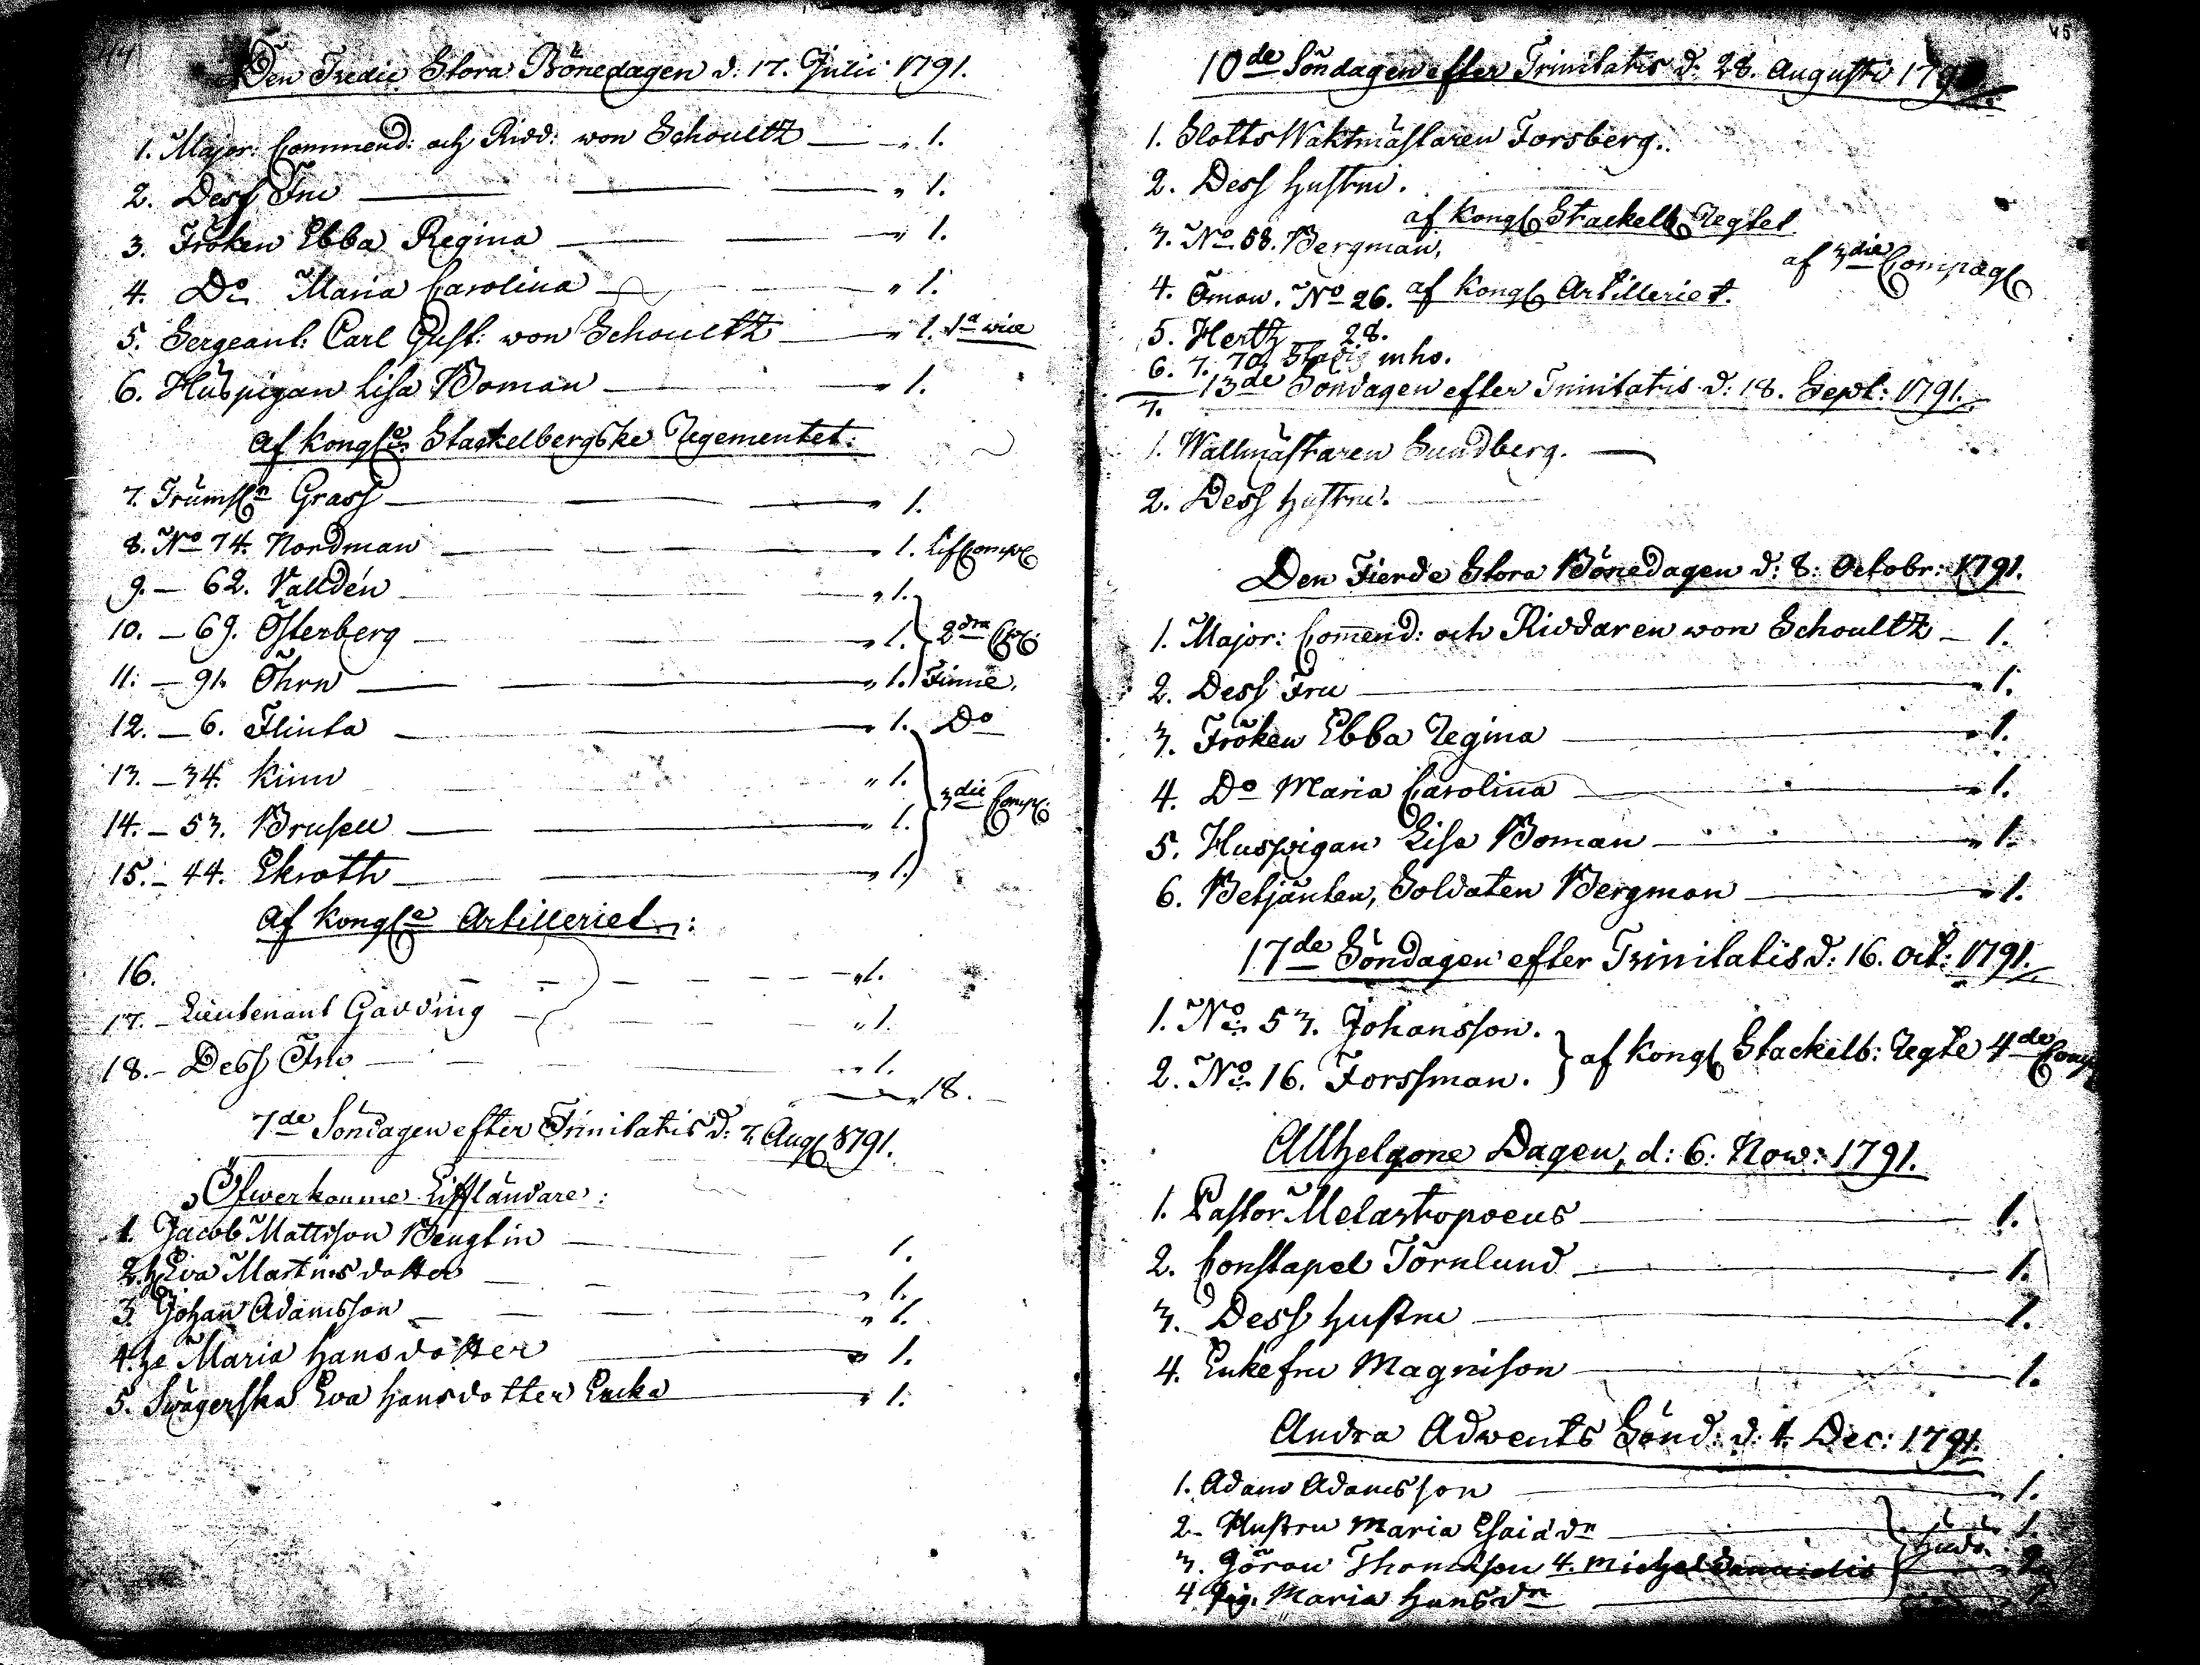 44
Den Tredie Stora Bönedagen d: 17. Julii 1791.
1. Major: Commend: och Ridd: von Schoultz — „ 1.
2. Dess Fru — „ 1.
3. Fröken Ebba Regina — „ 1.
4. Do Maria Carolina — „ 1.
5. Sergeant: Carl Gust: von Schoultz — „ 1. 1a vice
6. Huspigan Lisa Boman — „ 1.
af Kongle Stackelbergske Regementet:
7. Trumsln Grass — „ 1.
8. No 74. Nordman — „ 1. LifCompl
9. — 62. Valldén — „ 1.
10. — 69. Österberg — „ 1. 2dra
11. — 91. Öhrn — „ 1. Finne.
12. — 6. Flinta — „ 1. Do
13. — 34. Kinn „ 1.
14. — 53. Brusell — „ 1. 3die Comp:
15. — 44. Ekroth — „ 1.
af Kongle Artilleriet:
16. — „ 1.
17. — Lieutenant Gadding — „ 1.
18. — Dess Fru — „ 1.
„ 18.
7de Söndagen efter Trinitatis d: 7 Aug 1791.
Öfwerkomne Liffländare:
1. Jacob Mattsson Benglin — 1.
2. h Eva Martinsdotter — „ 1.
3. Johan Adamsson — „ 1.
4. he Maria Hansdotter — „ 1.
5. Swägerska Eva Hansdotter Encka — „ 1.
45
10de Söndagen efter Trinitatis d: 28. Augusti 179
1. SlottsWaktmästaren Forsberg.
2. Dess hustru.
af Kongl Stackelb Regtet
3. No 58. Bergman, af 3die Compagl
4. Öman. No 26. af Kongl Artilleriet.
5. Hertz 28.
6. 7.
13de Söndagen efter Trinitatis d: 18. Sept: 1791.
7.
1. Wallmästaren Sundberg. —
2. Dess hustru.
Den Fierde Stora Bönedagen d: 8: Octobr: 1791.
1. Major: Comend: och Riddaren von Schoultz — 1.
2. Dess Fru — „ 1.
3. Fröken Ebba Regina — „ 1.
4. Do Maria Carolina — „ 1.
5. Huspigan Lisa Boman — „ 1.
6. Betjänten, Soldaten Bergman — „ 1.
17de Söndagen efter Trinitatis d: 16. Oct: 1791.
1. No 53. Johansson.
2. No 16. Forssman. } af Kongl Stackelb: Regte 4de Comp
Allhelgone Dagen, d: 6: Now: 1791.
1. Pastor Melartopoeus — 1.
2. Constapel Törnlund — 1.
3. Dess hustru — 1.
4. Enkefru Magnison — 1.
Andra Adwents Sönd: d: 4. Dec: 1791.
1. Adam Adamsson — „ 1.
2. Hustru Maria Esaiädr — 1.
3. Göran Thomasson 4. Michel
4 Pig. Maria Hansdr — 1.